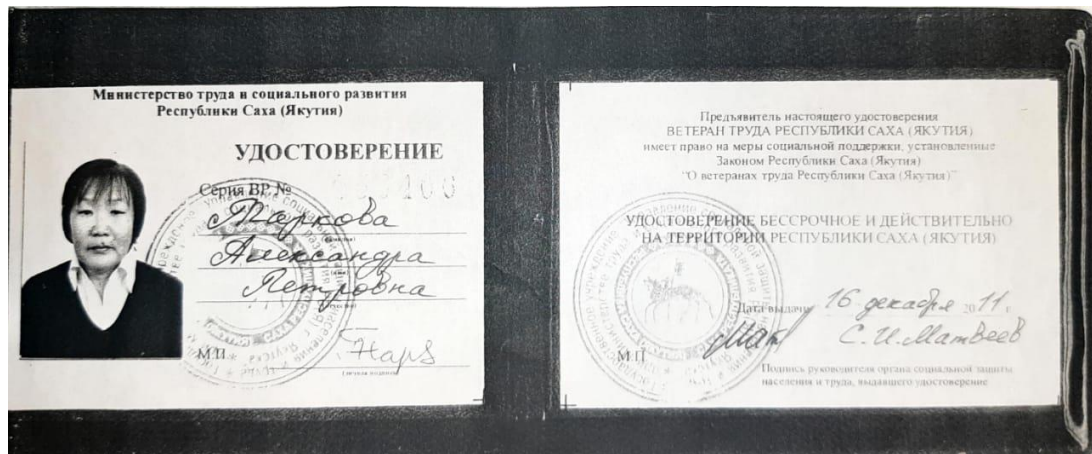 Министерство труда и социального развития
Республики Саха (Якутия)
УДОСТОВЕРЕНИЕ
Серия ВР №
Александра
Петровна
(личная подпись)
М.П.
Предъявитель настоящего удостоверения
ВЕТЕРАН ТРУДА РЕСПУБЛИКИ САХА (ЯКУТИЯ)
имеет право на меры социальной поддержки, установленные
Законом Республики Саха (Якутия)
"О ветеранах труда Республики Саха (Якутия)"
УДОСТОВЕРЕНИЕ БЕССРОЧНОЕ И ДЕЙСТВИТЕЛЬНО
НА ТЕРРИТОРИИ РЕСПУБЛИКИ САХА (ЯКУТИЯ)
Дата выдачи 16 декабря 2011 г.
С.И.Матвеев
М.П.
Подпись руководителя органа социальной защиты
населения и труда, выдавшего удостоверение